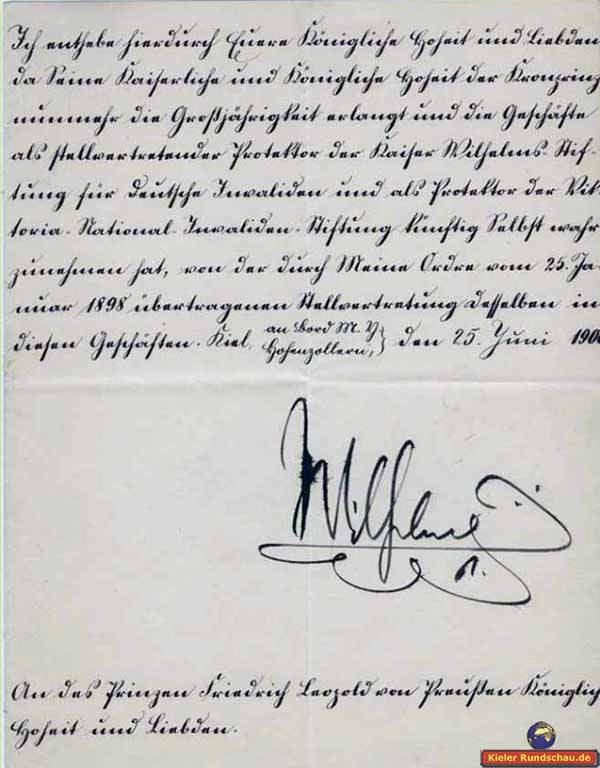 Ich enthebe hierdurch Euere Königliche Hoheit und Liebden
da Seine Kaiserliche und Königliche Hoheit der Kronprinz
nunmehr die Großjährigkeit erlangt und die Geschäfte
als stellvertretender Protektor der Kaiser Wilhelms-Stif-
tung für Deutsche Invaliden und als Protektor der Vik-
toria-National-Invaliden-Stiftung künftig Selbst wahr
zunehmen hat, von der durch Meine Ordre vom 25. Ja-
nuar 1898 übertragenen Stellvertretung Desselben in
diesen Geschäften. Kiel, an Bord M. Y. Hohenzollern, den 25. Juni 1900
Wilhelm
An des Prinzen Friedrich Leopold von Preußen Königlich
Hoheit und Liebden.
Kieler Rundschau.de